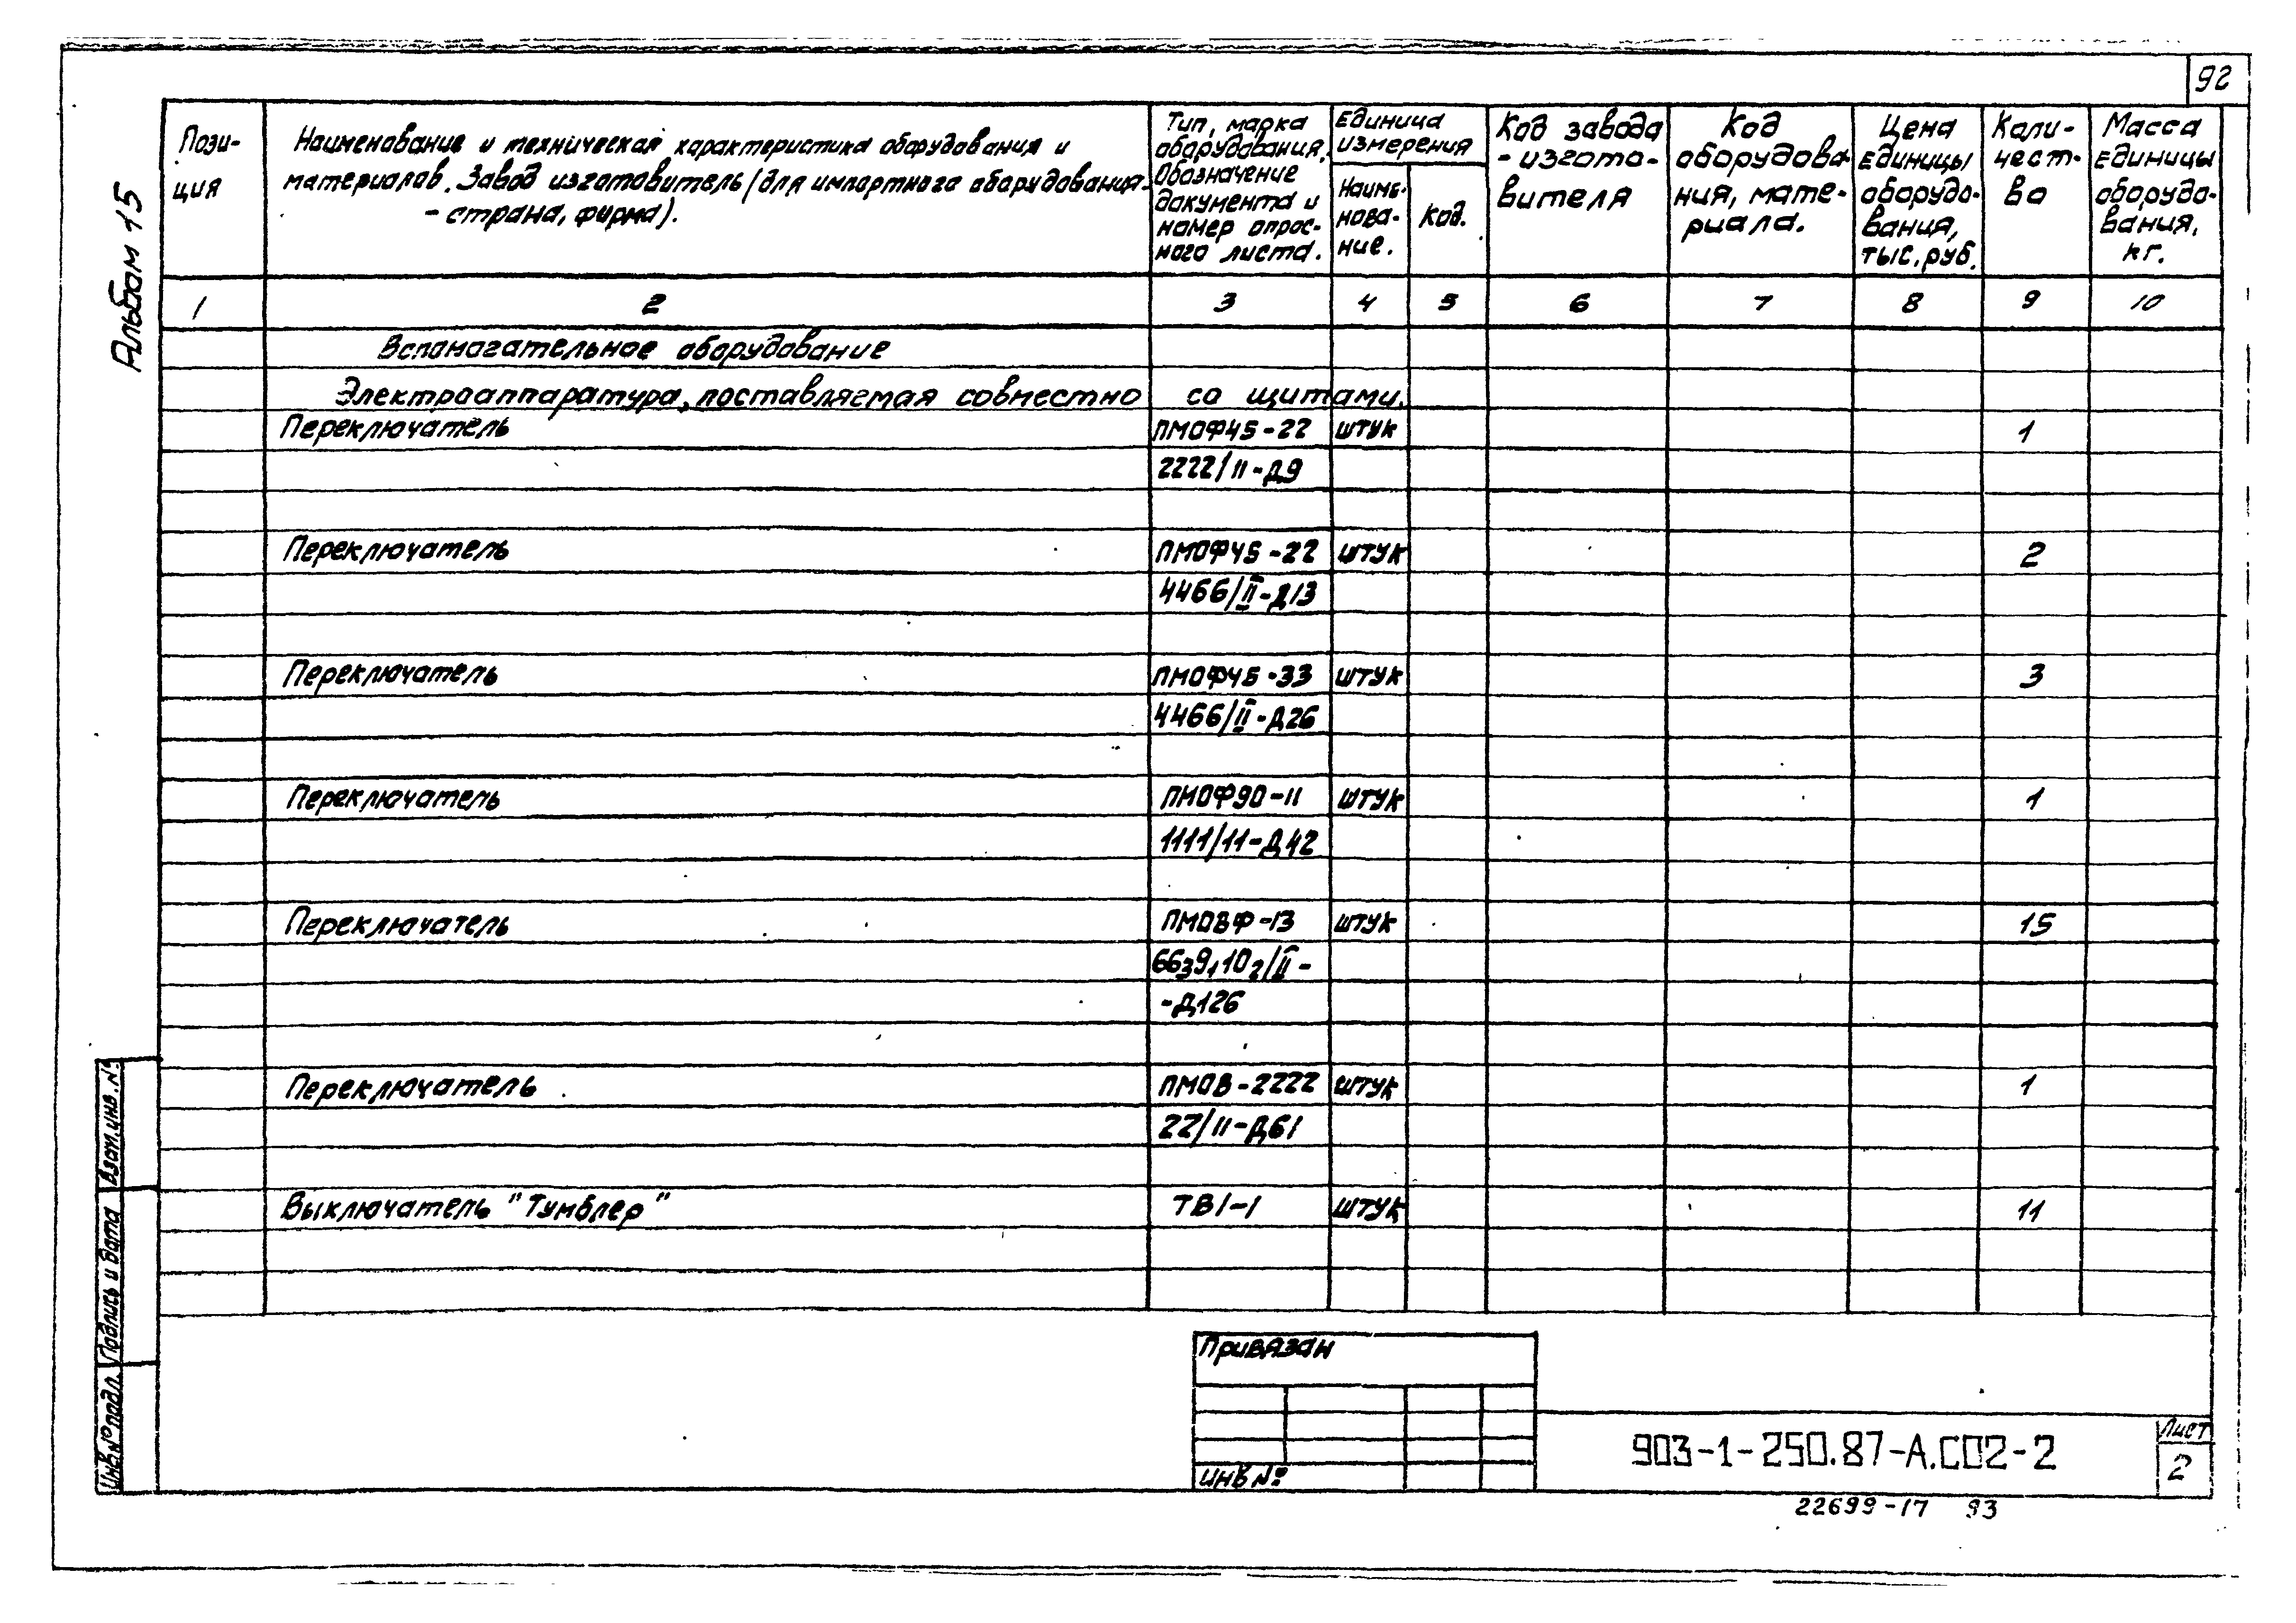 92
Альбом 15
Пози-
ция
Наименование и техническая характеристика оборудования и
материалов. Завод изготовитель (для импортного оборудования-
- страна, фирма).
Тип, марка
оборудования.
Обозначение
документа и
номер опрос-
ного листа.
Единица
измерения
Наиме-
нова-
ние.
Код.
Код завода
- изгото-
вителя
Код
оборудова-
ния, мате-
риала.
Цена
единицы
оборудо-
вания,
тыс. руб.
Коли-
чест-
во
Масса
единицы
оборудо-
вания,
кг.
1 2 3 4 5 6 7 8 9 10
Вспомогательное оборудование
Электроаппаратура, поставляемая совместно со щитами.
Переключатель ПМОФ45-22 штук 1
2222/II-Д9
Переключатель ПМОФ45-22 штук 2
4466/II-Д13
Переключатель ПМОФ45-33 штук 3
4466/II-Д26
Переключатель ПМОФ90-11 штук 1
1111/11-Д42
Переключатель ПМОВФ-13 штук 15
6639,102/II-
-Д126
Переключатель ПМОВ-2222 штук 1
22/II-Д61
Выключатель "Тумблер" ТВ1-1 штук 11
Взам. инв. №
Подпись и дата
Инв № подл.
Привязан
Инв №
903-1-250.87-А.СО2-2
Лист
2
22699-17 93